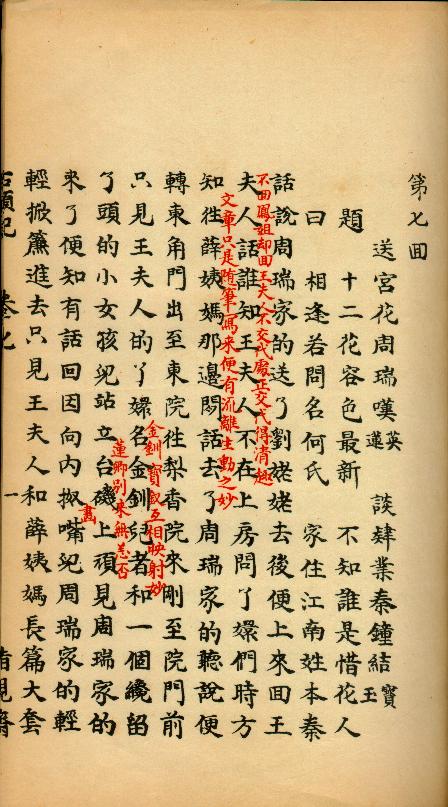 第七回
送宮花周瑞嘆英蓮 談肄業秦鐘結寶玉
題 十二花容色最新 不知誰是惜花人
曰 相逢若問名何氏 家住江南姓本秦
話說周瑞家的送了劉姥姥去後便上來回王
不回鳳姐却回王夫人不交代處正交代得清趣
夫人話誰知王夫人不在上房問了嬛們時方
文章只是随筆寫来便有流離生動之妙
知徃薛姨媽那邊閑話去了周瑞家的聽說便
轉東角門出至東院徃梨香院來剛至院門前
金釧寶釵互相映射妙
只見王夫人的了嬛名金釧兒者和一個纔留
蓮卿别来無恙否
了頭的小女孩兒站立台磯上頑見周瑞家的
畫
來了便知有話回因向内嘴兒周瑞家的輕
輕掀簾進去只見王夫人和薛姨媽長篇大套
石頭記 卷七 一 脂硯齋